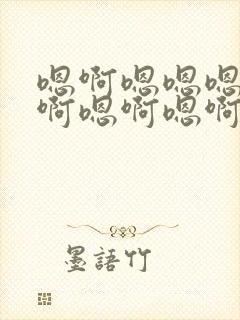 嗯啊嗯嗯嗯
啊嗯啊嗯啊
墨語竹